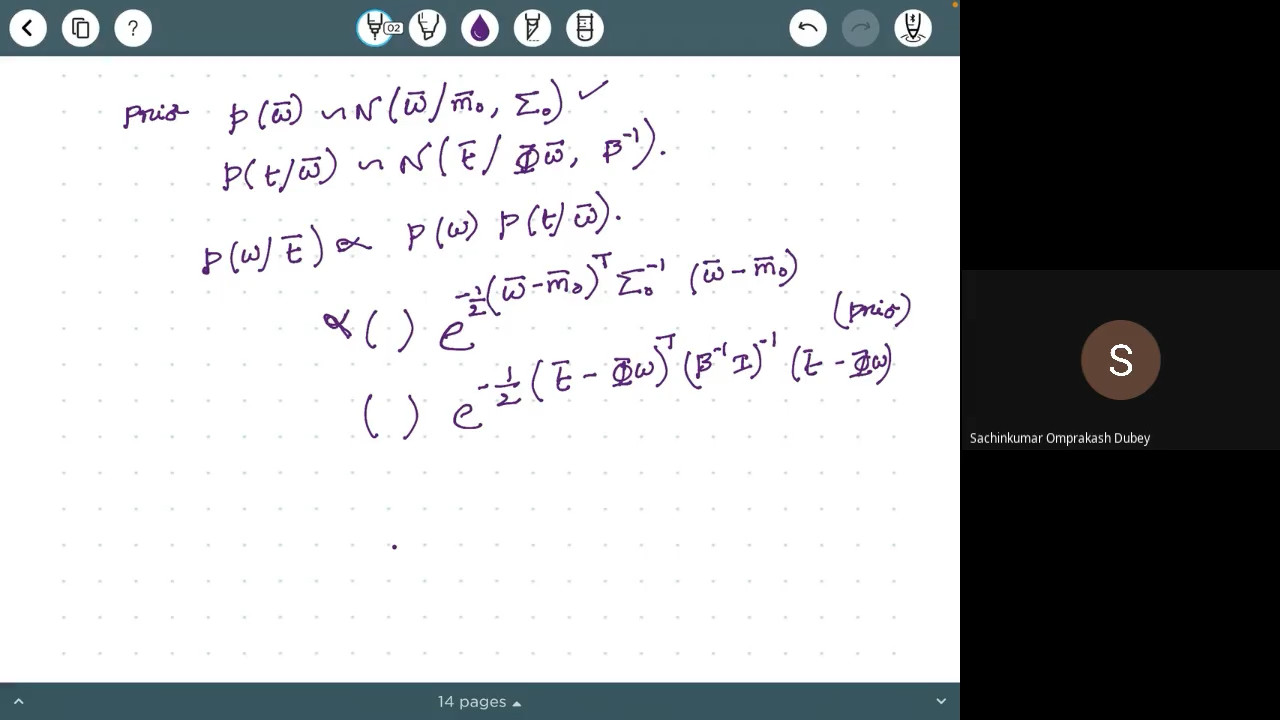 02
prior p(w̄) ~ N(w̄/m̄₀, Σ₀) ✓
p(t/w̄) ~ N(t̄/Φw̄, β⁻¹).
p(w/t̄) ∝ p(w) p(t/w̄).
∝ ( ) e^{-1/2 (w̄ - m̄₀)^T Σ₀⁻¹ (w̄ - m̄₀)}
(prior)
( ) e^{-1/2 (t̄ - Φw)^T (β⁻¹ I)⁻¹ (t̄ - Φw)}
S
Sachinkumar Omprakash Dubey
14 pages